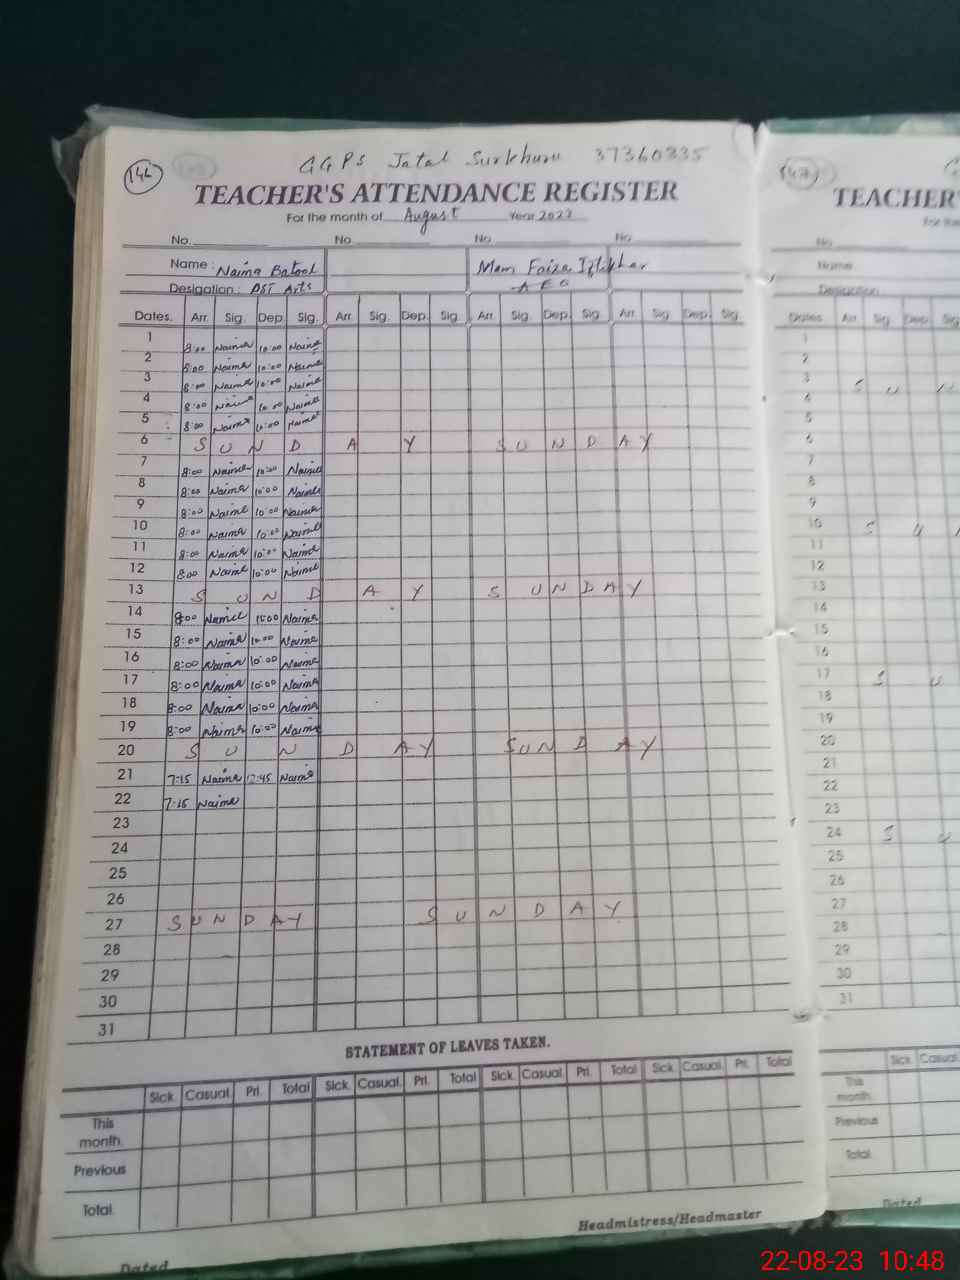 GGPS Jatal Surkhuru 37360835
TEACHER'S ATTENDANCE REGISTER
For the month of August Year 2023
No. No No No
Name: Naima Batool Mam Faiza Iftikhar
Desigation: PST Arts AEO
Dates. Arr. Sig. Dep. Sig. Arr. Sig. Dep. Sig. Arr. Sig. Dep. Sig. Arr. Sig. Dep. Sig.
1 8:00 Naima 10:00 Naima
2 8:00 Naima 10:00 Naima
3 8:00 Naima 10:00 Naima
4 8:00 Naima 10:00 Naima
5 8:00 Naima 10:00 Naima
6 S U N D A Y S U N D A Y
7 8:00 Naima 10:00 Naima
8 8:00 Naima 10:00 Naima
9 8:00 Naima 10:00 Naima
10 8:00 Naima 10:00 Naima
11 8:00 Naima 10:00 Naima
12 8:00 Naima 10:00 Naima
13 S U N D A Y S U N D A Y
14 8:00 Naima 10:00 Naima
15 8:00 Naima 10:00 Naima
16 8:00 Naima 10:00 Naima
17 8:00 Naima 10:00 Naima
18 8:00 Naima 10:00 Naima
19 8:00 Naima 10:00 Naima
20 S U N D A Y S U N D A Y
21 7:15 Naima 12:45 Naima
22 7:15 Naima
23
24
25
26
27 S U N D A Y S U N D A Y
28
29
30
31
STATEMENT OF LEAVES TAKEN.
Sick. Casual. Pri. Total Sick. Casual. Pri. Total Sick. Casual. Pri. Total Sick. Casual. Pri. Total
This month.
Previous
Total.
Headmistress/Headmaster
Dated
TEACHER'
No
Name
Desigation
Dates Arr. Sig. Dep. Sig
1
2
3 S U N
4
5
6
7
8
9
10 S U
11
12
13
14
15
16
17 S U
18
19
20
21
22
23
24 S U
25
26
27
28
29
30
31
Sick. Casual.
This month.
Previous
Total
Dated
22-08-23 10:48